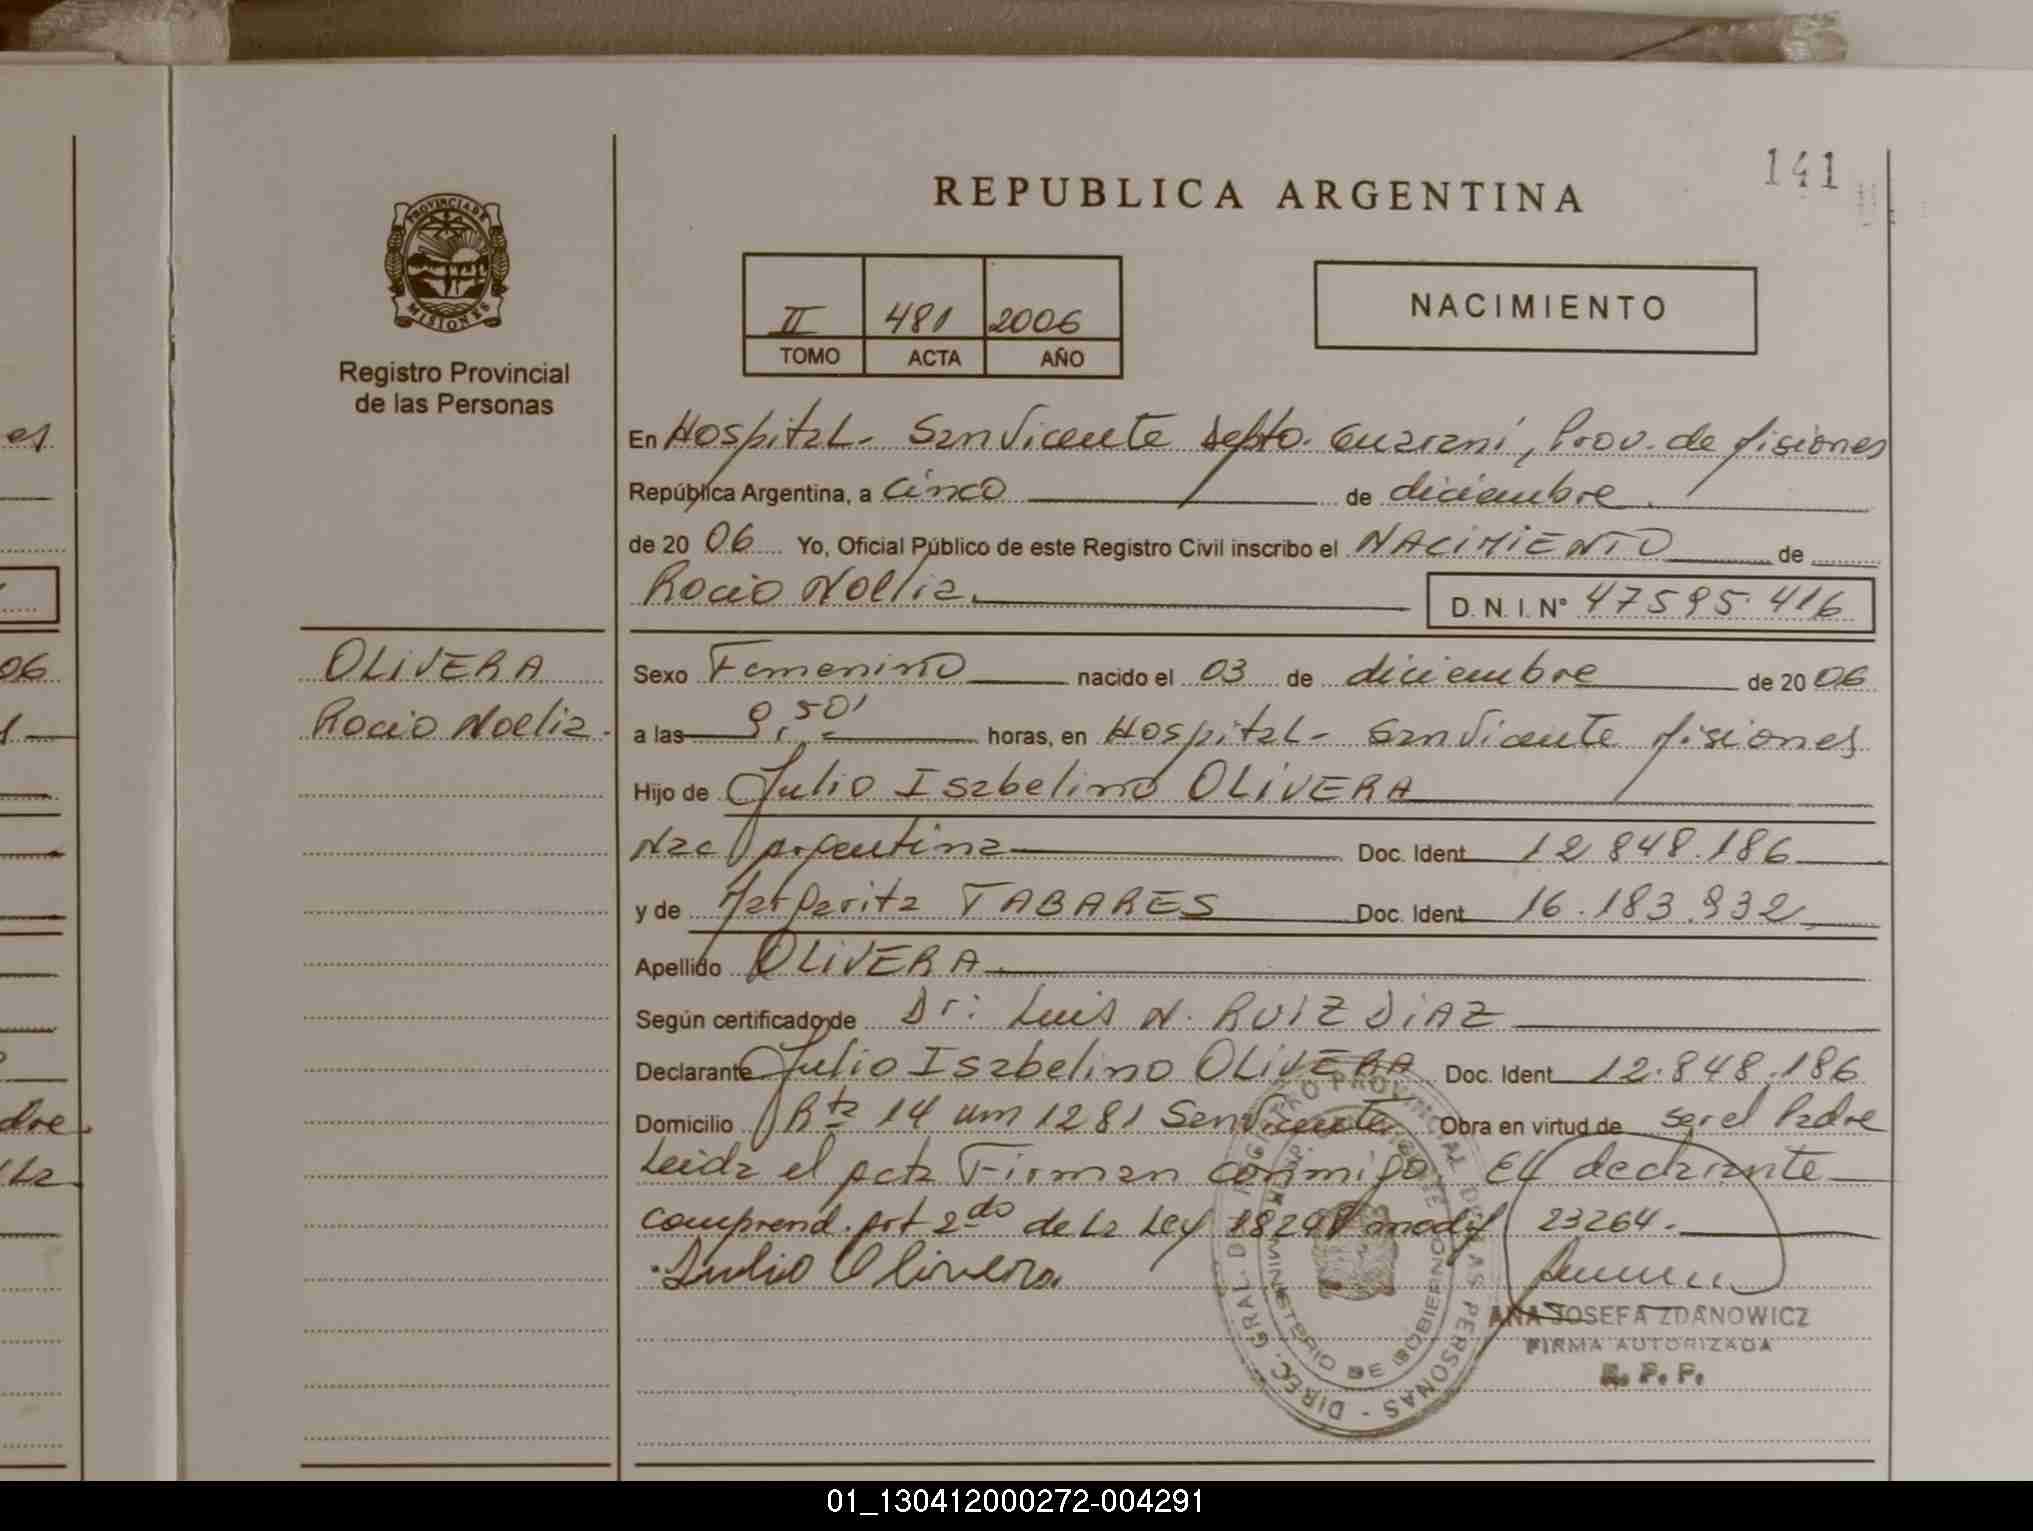 141
REPUBLICA ARGENTINA
PROVINCIA DE
MISIONES
Registro Provincial
de las Personas
II 481 2006
TOMO ACTA AÑO
NACIMIENTO
En Hospital - San Vicente Depto. Guaraní, Prov. de Misiones
República Argentina, a cinco de diciembre
de 20 06 Yo, Oficial Público de este Registro Civil inscribo el NACIMIENTO de
Rocio Noelia. D. N. I. N° 47595.416
OLIVERA
Rocio Noelia.
Sexo Femenino nacido el 03 de diciembre de 20 06
a las 9,50' horas, en Hospital - San Vicente Misiones
Hijo de Julio Isabelino OLIVERA
Nac Argentina Doc. Ident 12.848.186
y de Margarita TABARES Doc. Ident 16.183.932
Apellido OLIVERA
Según certificado de Dr: Luis N. RUIZ DIAZ
Declarante Julio Isabelino OLIVERA Doc. Ident 12.848.186
Domicilio Rta 14 Km 1281 San Vicente Obra en virtud de ser el Padre
Leida el Acta Firman conmigo El declarante
comprend. Art 2do de La Ley 18248 modif 23264.
Julio Olivera
ANA JOSEFA ZDANOWICZ
FIRMA AUTORIZADA
R. P. P.
DIREC. GRAL. DEL REGISTRO PROVINCIAL DE LAS PERSONAS
MINISTERIO DE GOBIERNO
es
06
dre
La
01_130412000272-004291